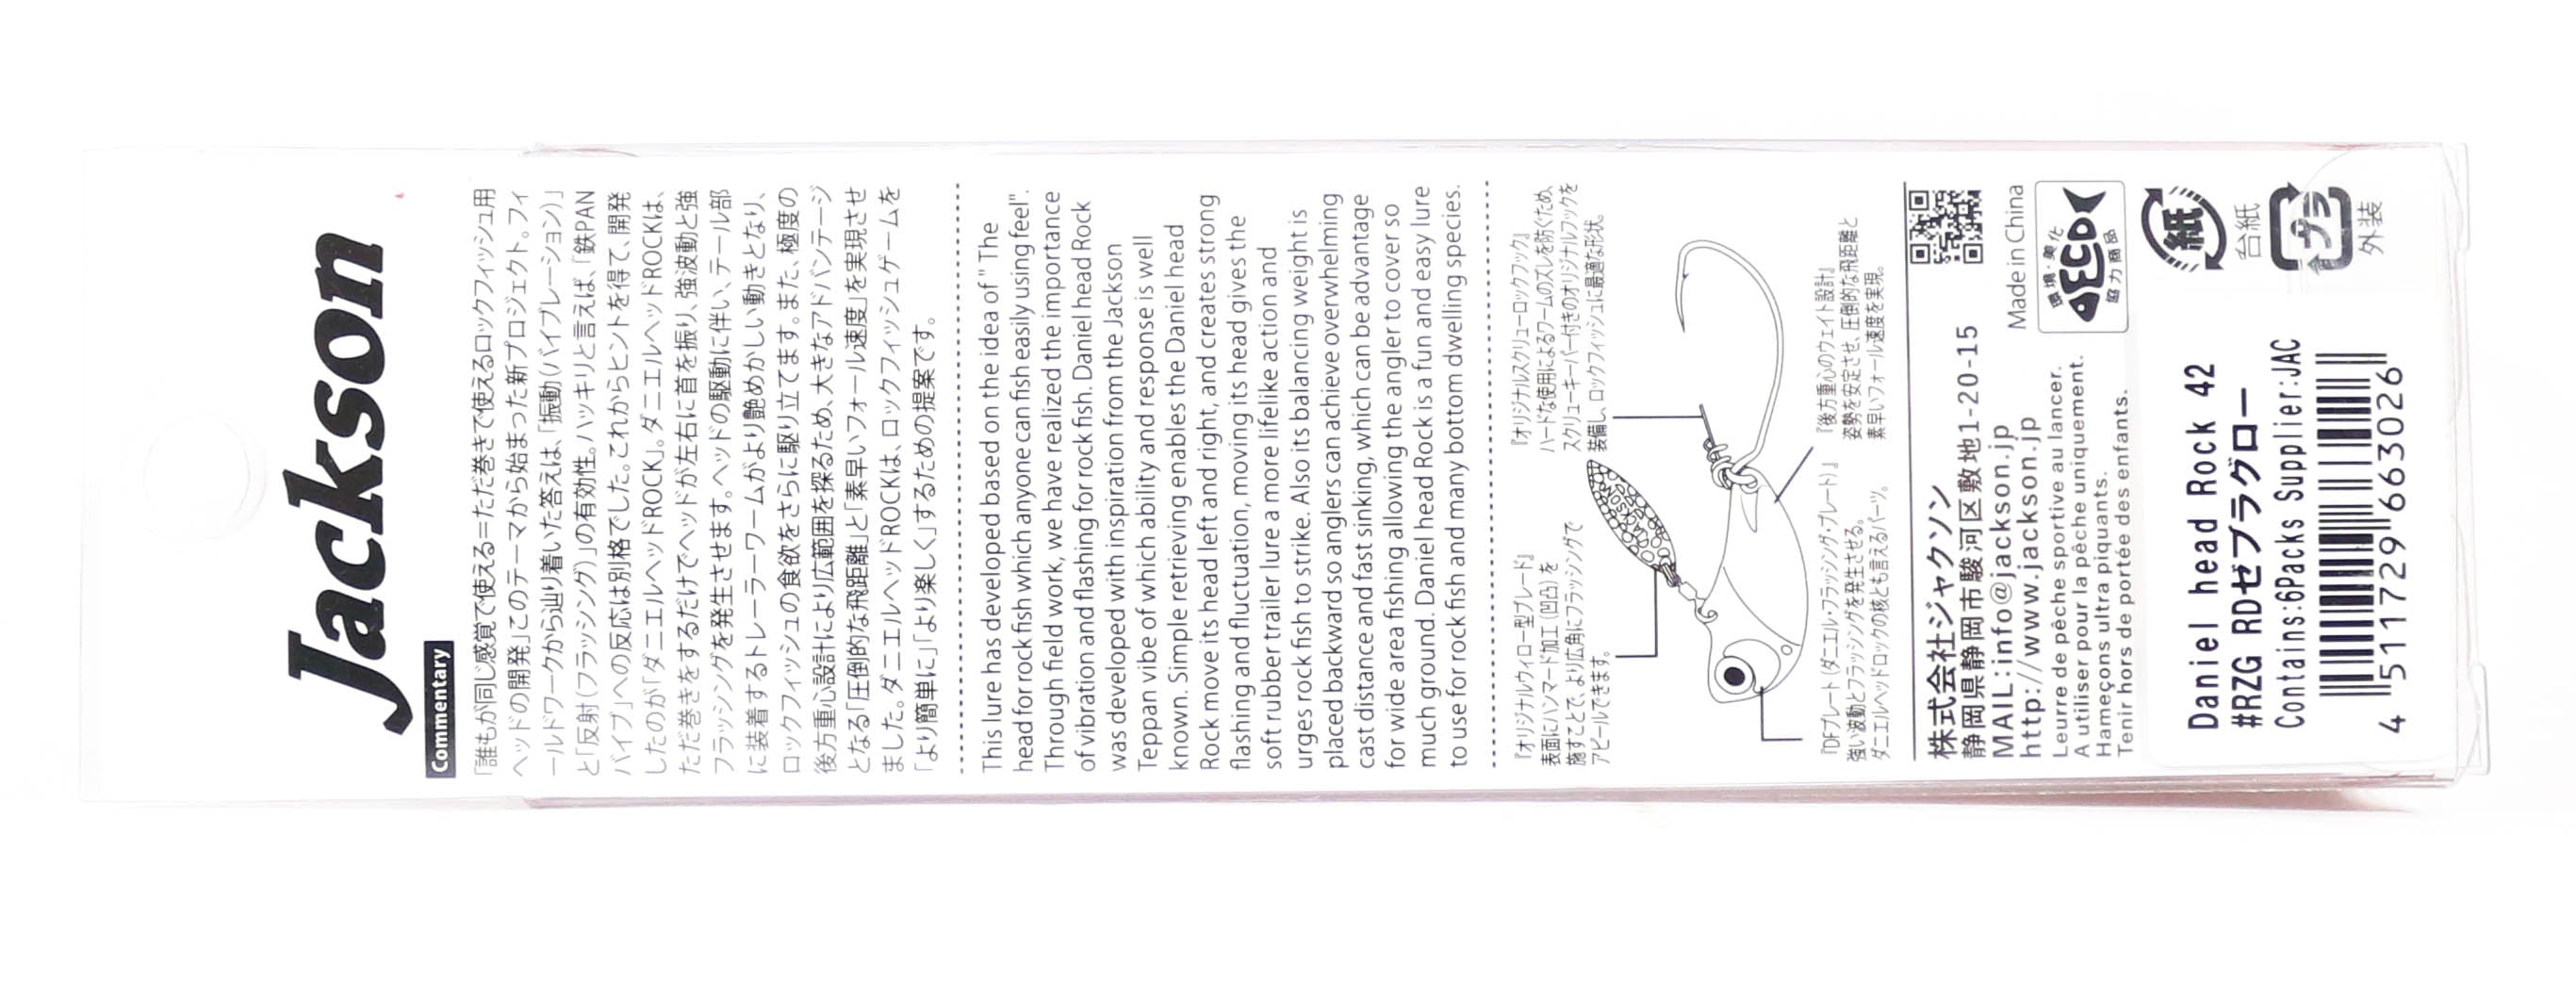 Jackson
Commentary
「誰もが同じ感覚で使える=ただ巻きで使えるロックフィッシュ用
ヘッドの開発」このテーマから始まった新プロジェクト。フィ
ールドワークから辿り着いた答えは、「振動(バイブレーション)」
と「反射(フラッシング)」の有効性。ハッキリと言えば、「鉄PAN
バイブ」への反応は別格でした。これからヒントを得て、開発
したのが「ダニエルヘッドROCK」。ダニエルヘッドROCKは、
ただ巻きをするだけでヘッドが左右に首を振り、強波動と強
フラッシングを発生させます。ヘッドの駆動に伴い、テール部
に装着するトレーラーワームがより艶めかしい動きとなり、
ロックフィッシュの食欲をさらに駆り立てます。また、極度の
後方重心設計により広範囲を探るため、大きなアドバンテージ
となる「圧倒的な飛距離」と「素早いフォール速度」を実現させ
ました。ダニエルヘッドROCKは、ロックフィッシュゲームを
「より簡単に」「より楽しく」するための提案です。
This lure has developed based on the idea of " The
head for rock fish which anyone can fish easily using feel".
Through field work, we have realized the importance
of vibration and flashing for rock fish. Daniel head Rock
was developed with inspiration from the Jackson
Teppan vibe of which ability and response is well
known. Simple retrieving enables the Daniel head
Rock move its head left and right, and creates strong
flashing and fluctuation, moving its head gives the
soft rubber trailer lure a more lifelike action and
urges rock fish to strike. Also its balancing weight is
placed backward so anglers can achieve overwhelming
cast distance and fast sinking, which can be advantage
for wide area fishing allowing the angler to cover so
much ground. Daniel head Rock is a fun and easy lure
to use for rock fish and many bottom dwelling species.
『オリジナルウィロー型ブレード』
表面にハンマード加工(凹凸)を
施すことで、より広角にフラッシングで
アピールできます。
『オリジナルスクリューロックフック』
ハードな使用によるワームのズレを防ぐため、
スクリューキーパー付きのオリジナルフックを
装備し、ロックフィッシュに最適な形状。
JACKSON
『DFプレート(ダニエル・フラッシング・プレート)』
強い波動とフラッシングを発生させる。
ダニエルヘッドロックの核とも言えるパーツ。
『後方重心のウェイト設計』
姿勢を安定させ、圧倒的な飛距離と
素早いフォール速度を実現。
株式会社ジャクソン
静岡県静岡市駿河区敷地1-20-15
MAIL:info@jackson.jp
http://www.jackson.jp
Leurre de pêche sportive au lancer.
A utiliser pour la pêche uniquement.
Hameçons ultra piquants.
Tenir hors de portée des enfants.
Made in China
環境・美化
ECO
協力商品
紙
台紙
プラ
外装
Daniel head Rock 42
#RZG RDゼブラグロー
Contains:6Packs Supplier:JAC
4 511729 663026